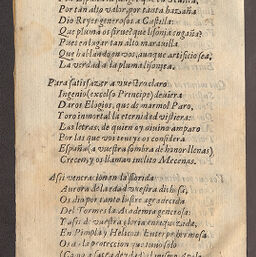 Por tan alto valor, por tanta hazaña
Dio Reyes generosos a Castilla:
Que pluma os sirue? que lisonja engaña?
Pues en lugar tan alto marauilla
Que hablando en vos, aunque artificio sea,
La verdad a la pluma lisonjea.
Para satisfazer a vuestro claro
Ingenio (excelso Principe) deuiera
Daros Elogios, que de marmol Paro,
Toro inmortal la eternidad vistiera:
Las letras, de quien oy diuino amparo
Por las que vos teneys os considera
España (a vuestra sombra de honor llenas)
Crecen, y os llaman inclito Mecenas.
Assi veneracion en la florida
Aurora de la edad vuestra dichosa,
Os dio por tanto lustre agradecida
Del Tormes la Academia generosa:
Y assi de vuestra sombra enriquezida,
En Pimpla y Helicon Euterpe hermosa
Os da la proteccion que tuuo solo